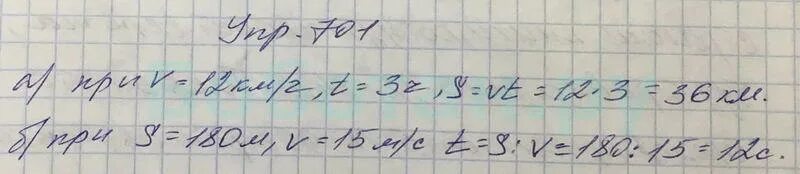 Упр. 701
а) при v = 12 км/г, t = 3г, S = vt = 12 · 3 = 36 км.
б) при S = 180 м, v = 15 м/с t = S : v = 180 : 15 = 12 с.